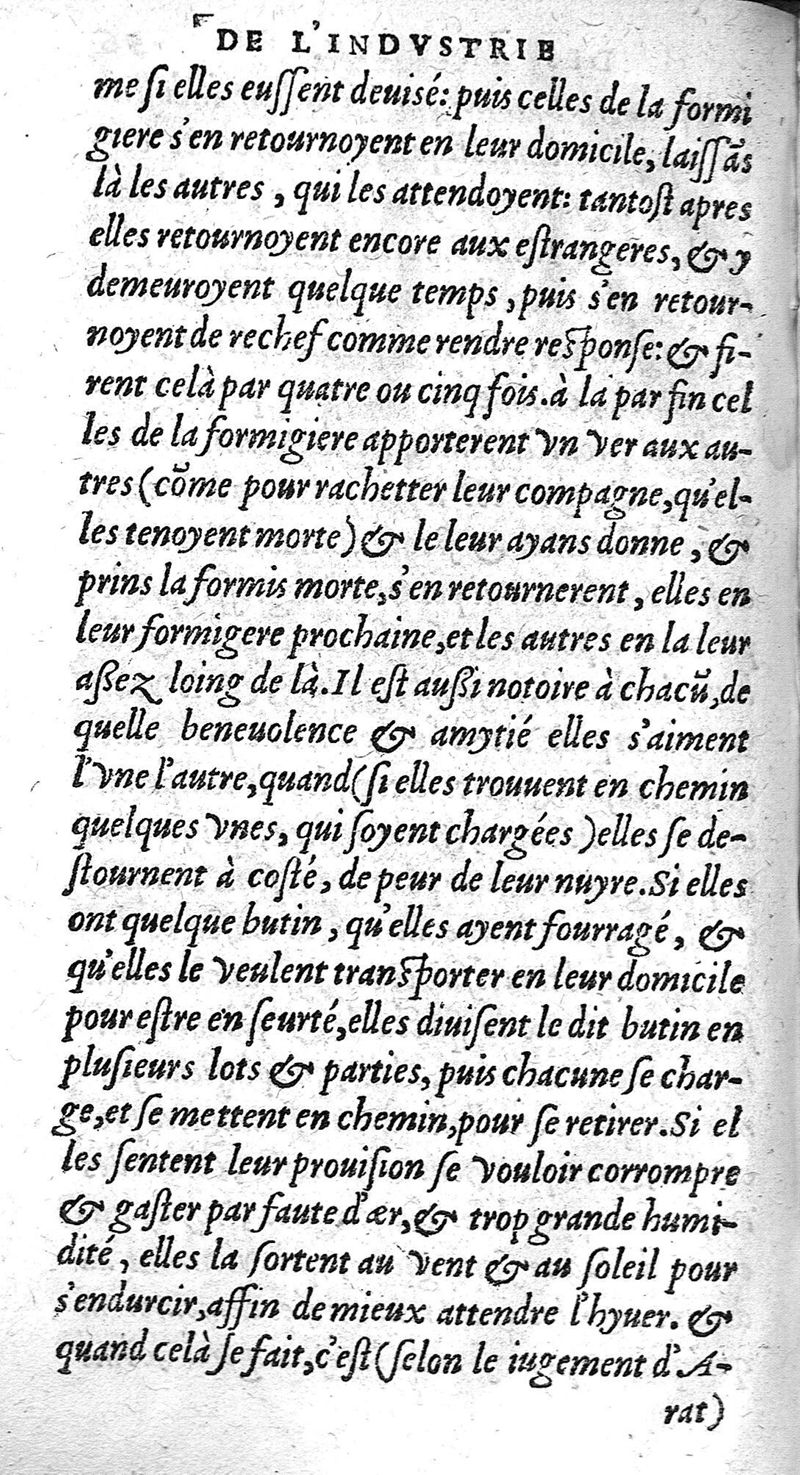 DE L'INDVSTRIE
me ſi elles euſſent deuisé: puis celles de la formi
giere s'en retournoyent en leur domicile, laiſſãs
là les autres, qui les attendoyent: tantoſt apres
elles retournoyent encore aux eſtrangeres, & y
demeuroyent quelque temps, puis s'en retour-
noyent de rechef comme rendre reſponſe: & fi-
rent celà par quatre ou cinq fois. à la par fin cel
les de la formigiere apporterent vn ver aux au-
tres (cõme pour rachetter leur compagne, qu'el-
les tenoyent morte) & le leur ayans donne, &
prins la formis morte, s'en retournerent, elles en
leur formigere prochaine, et les autres en la leur
aßez loing de là. Il eſt außi notoire à chacũ, de
quelle beneuolence & amytié elles s'aiment
l'vne l'autre, quand (ſi elles trouuent en chemin
quelques vnes, qui ſoyent chargées) elles ſe de-
ſtournent à coſté, de peur de leur nuyre. Si elles
ont quelque butin, qu'elles ayent fourragé, &
qu'elles le veulent tranſporter en leur domicile
pour eſtre en ſeurté, elles diuiſent le dit butin en
pluſieurs lots & parties, puis chacune ſe char-
ge, et ſe mettent en chemin, pour ſe retirer. Si el
les ſentent leur prouiſion ſe vouloir corrompre
& gaſter par faute d'ær, & trop grande humi-
dité, elles la ſortent au vent & au ſoleil pour
s'endurcir, affin de mieux attendre l'hyuer. &
quand celà ſe fait, c'eſt (ſelon le iugement d'A-
rat)